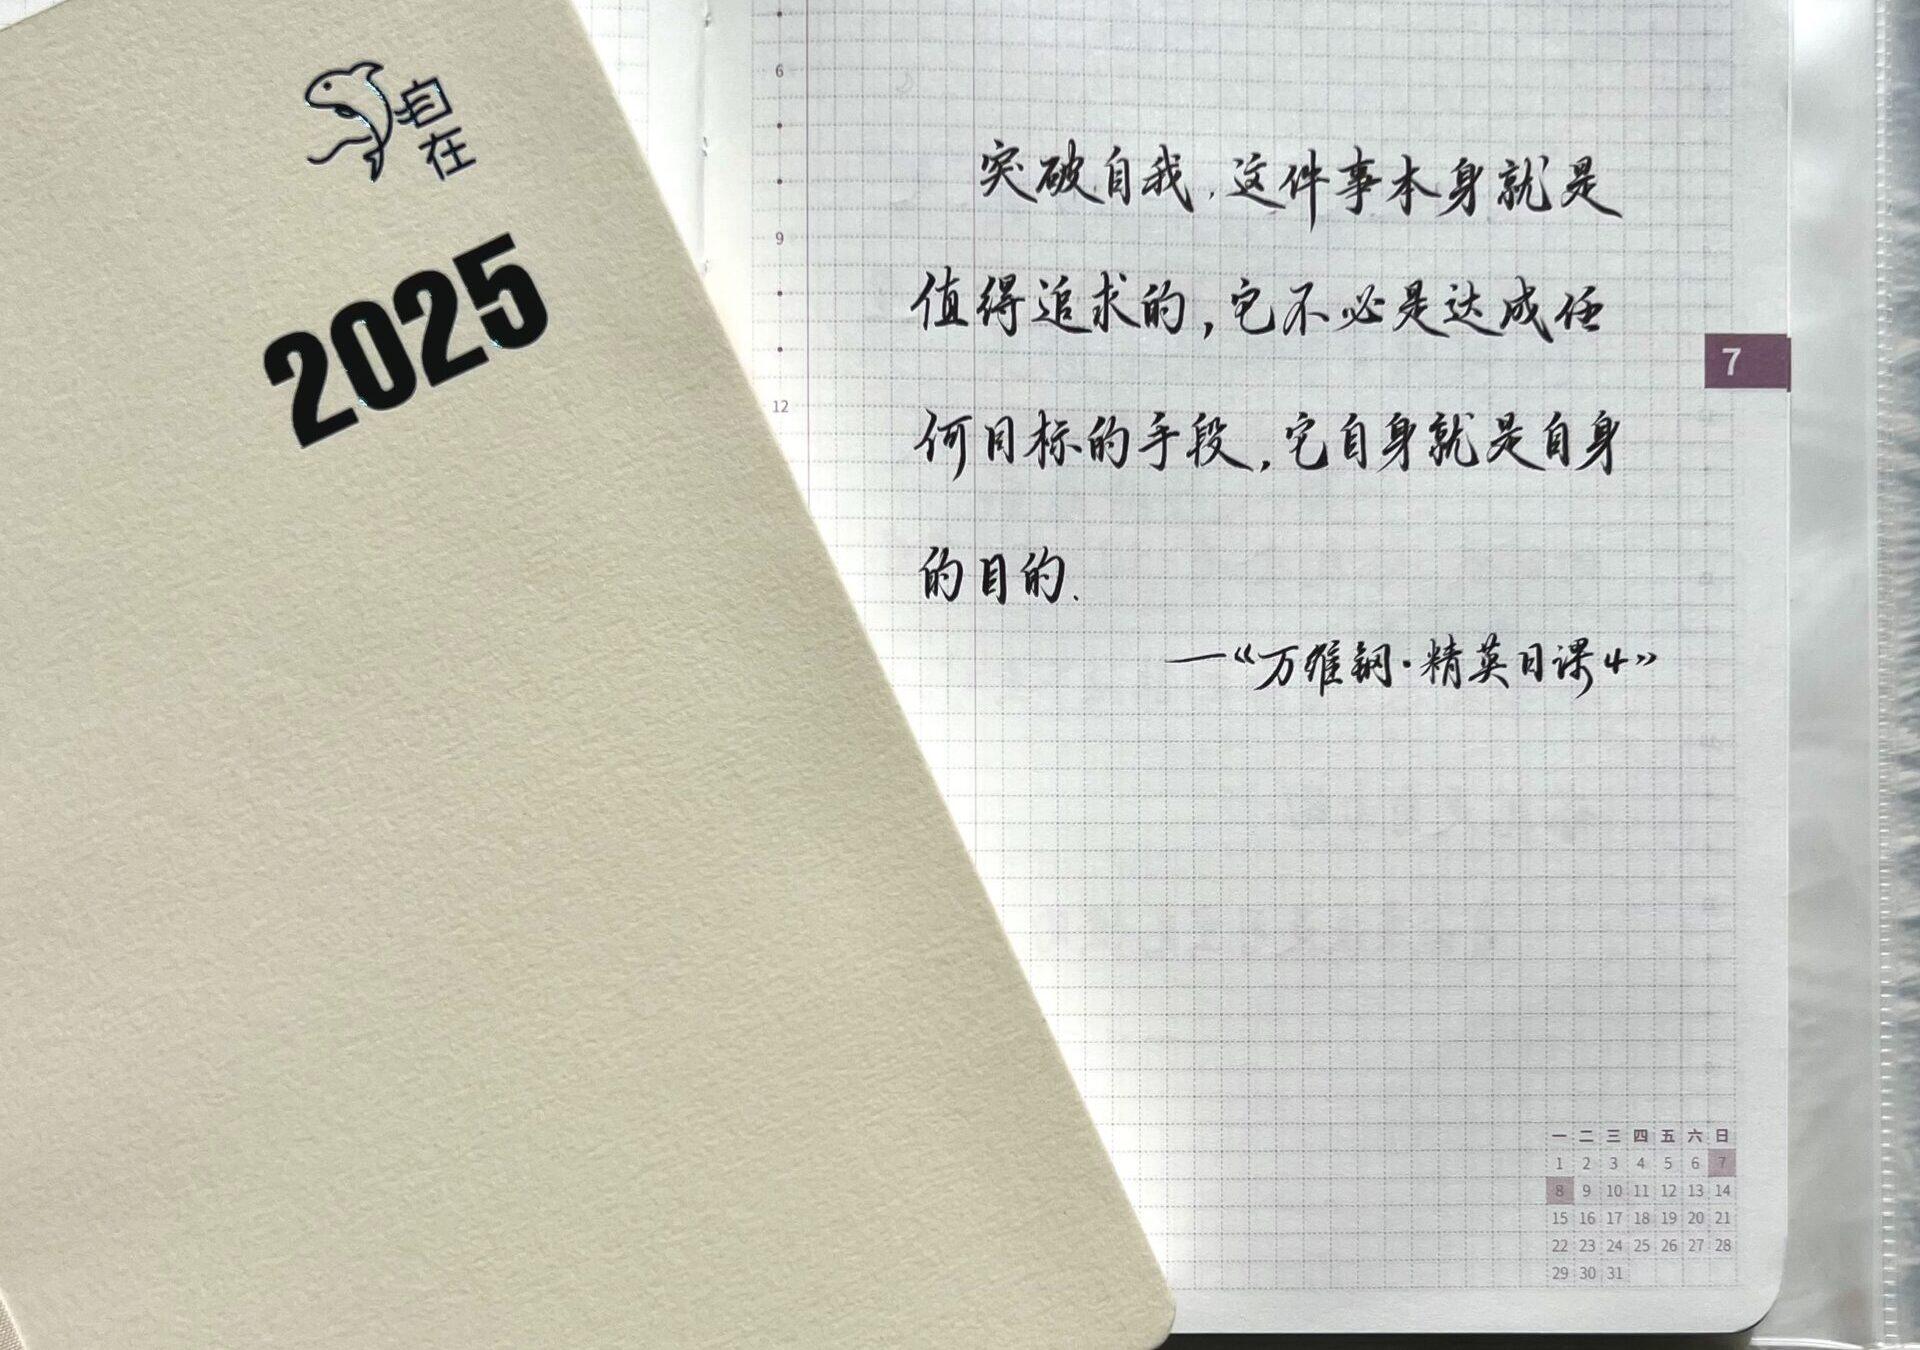 自在
2025
6
9
12
突破自我.这件事本身就是
值得追求的,它不必是达成任
何目标的手段,它自身就是自身
的目的.
—《万维钢·精英日课4》
7
一 二 三 四 五 六 日
1 2 3 4 5 6 7
8 9 10 11 12 13 14
15 16 17 18 19 20 21
22 23 24 25 26 27 28
29 30 31